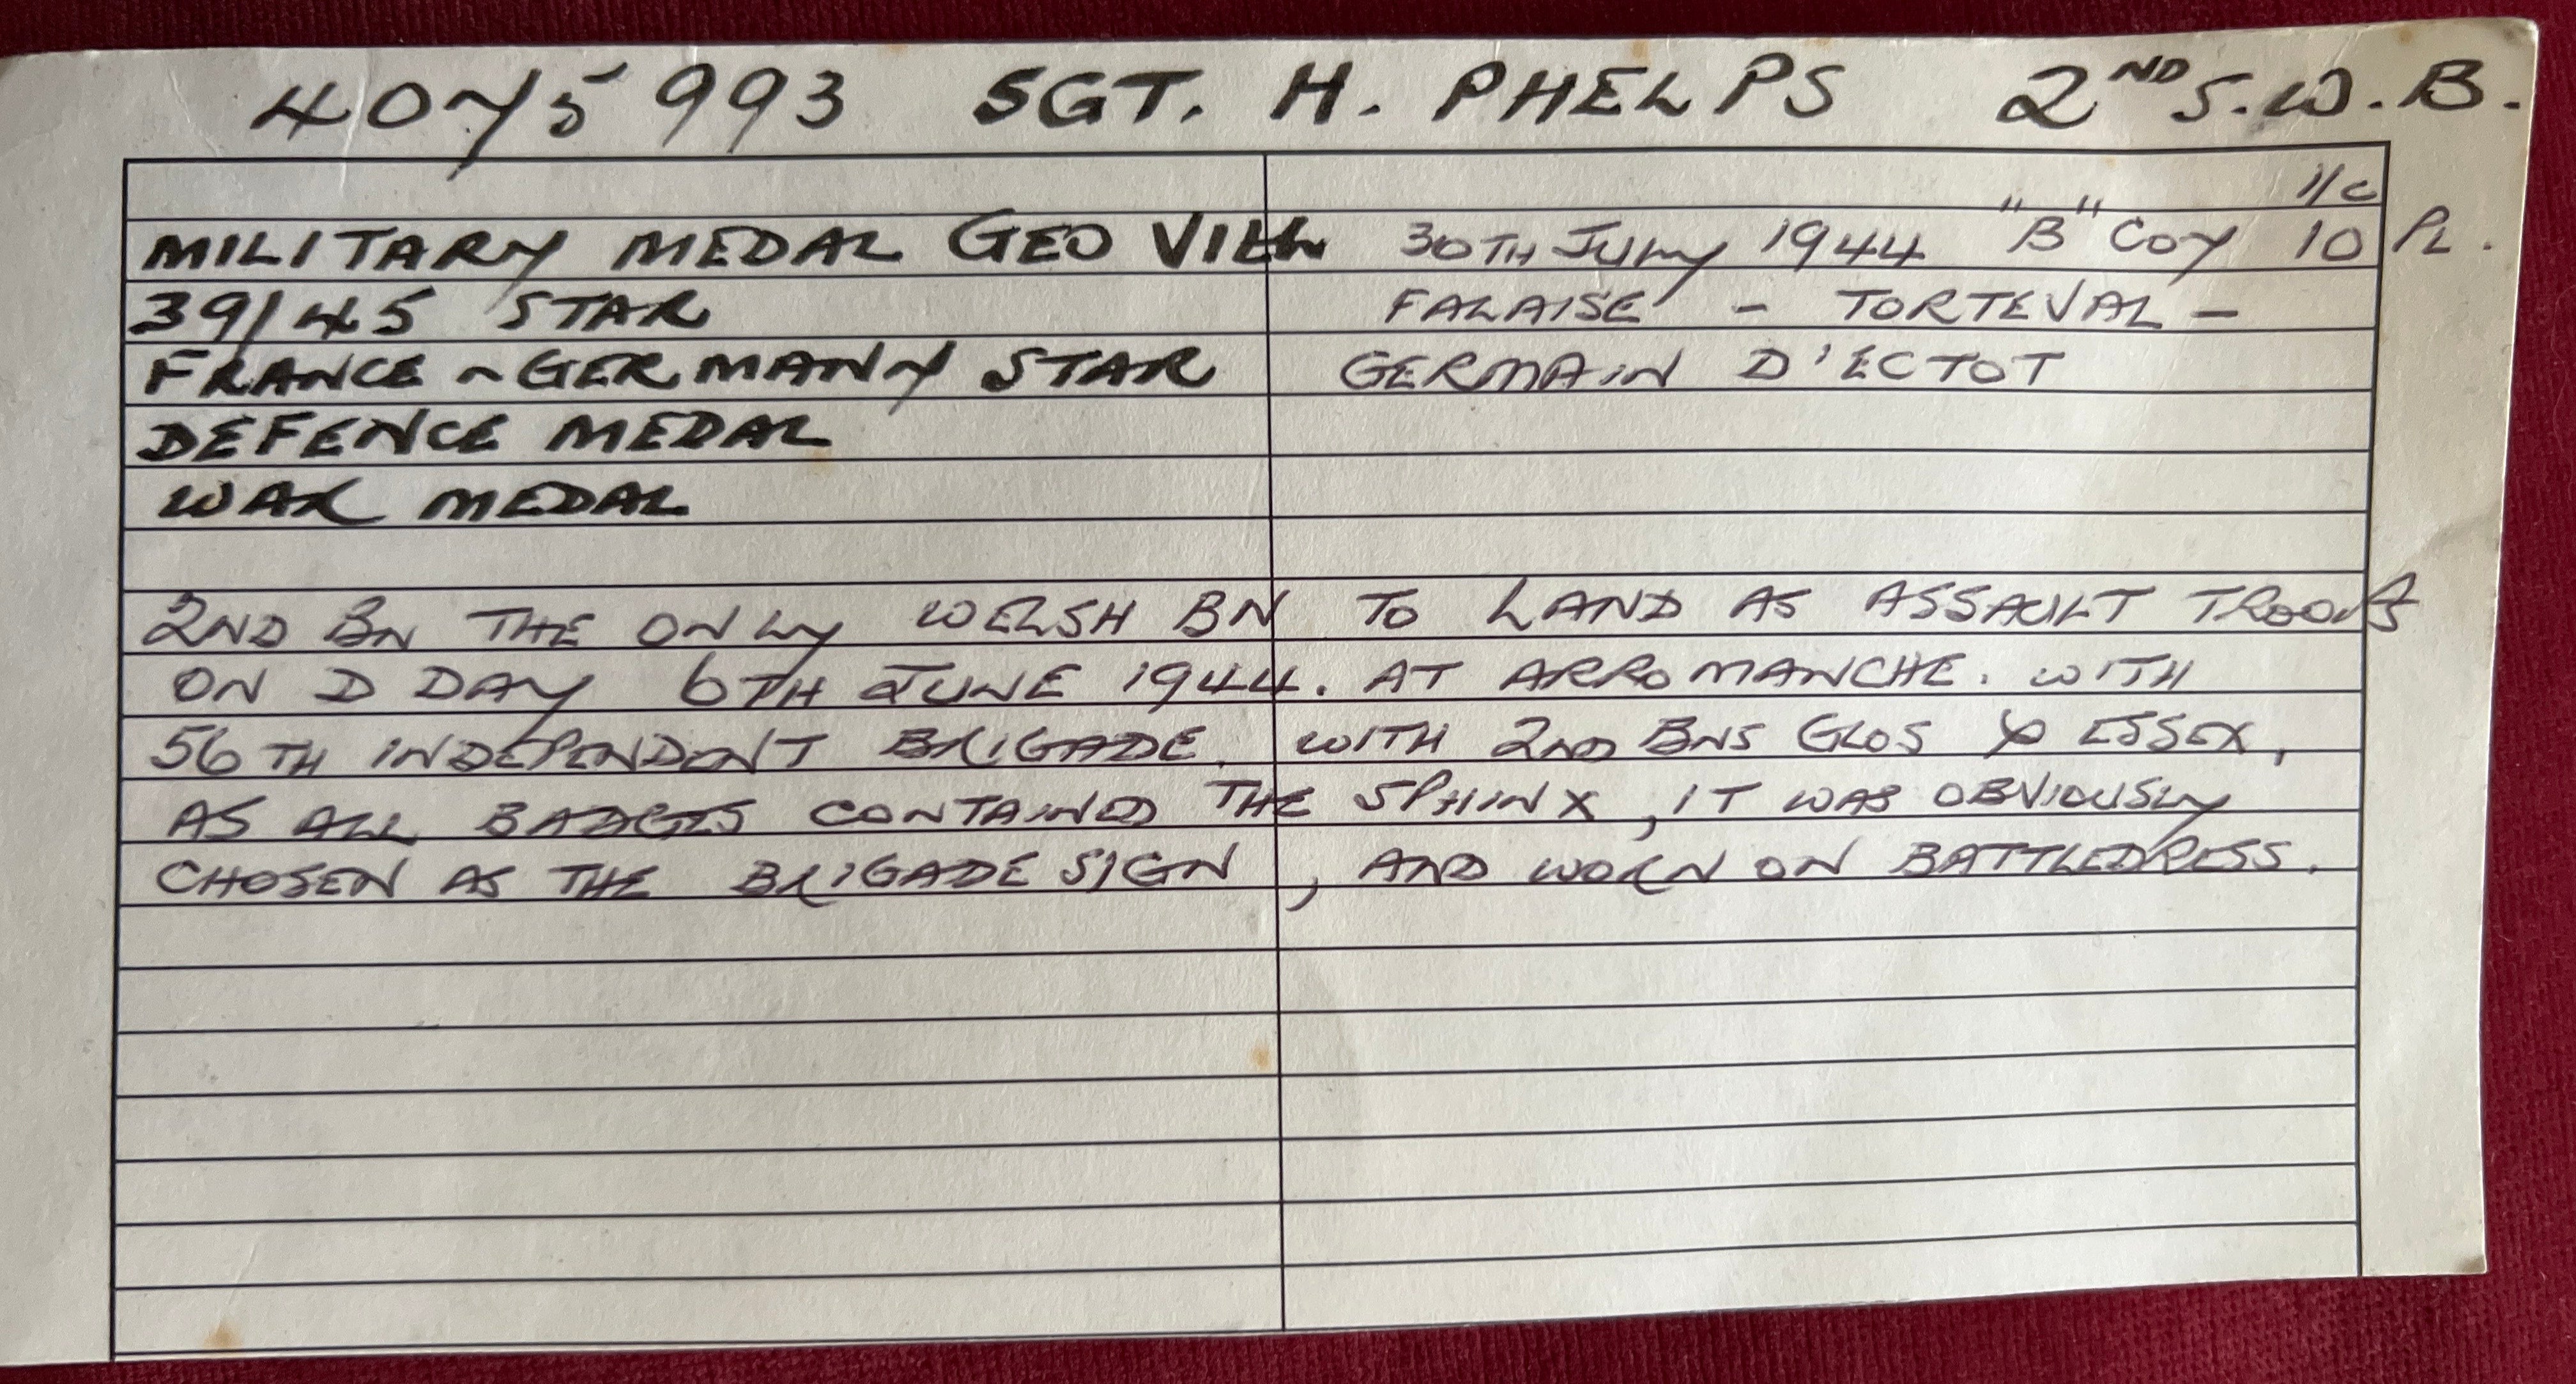 4075993 SGT. H. PHELPS 2ND S.W.B.
I/C
MILITARY MEDAL GEO VI 30TH JULY 1944 "B" COY 10 PL.
39/45 STAR FALAISE - TORTEVAL -
FRANCE ~ GERMANY STAR GERMAIN D'ECTOT
DEFENCE MEDAL
WAR MEDAL
2ND BN THE ONLY WELSH BN TO LAND AS ASSAULT TROOPS
ON D DAY 6TH JUNE 1944. AT ARROMANCHE. WITH
56TH INDEPENDENT BRIGADE. WITH 2ND BNS GLOS & ESSEX,
AS ALL BADGES CONTAINED THE SPHINX, IT WAS OBVIOUSLY
CHOSEN AS THE BRIGADE SIGN, AND WORN ON BATTLEDRESS.